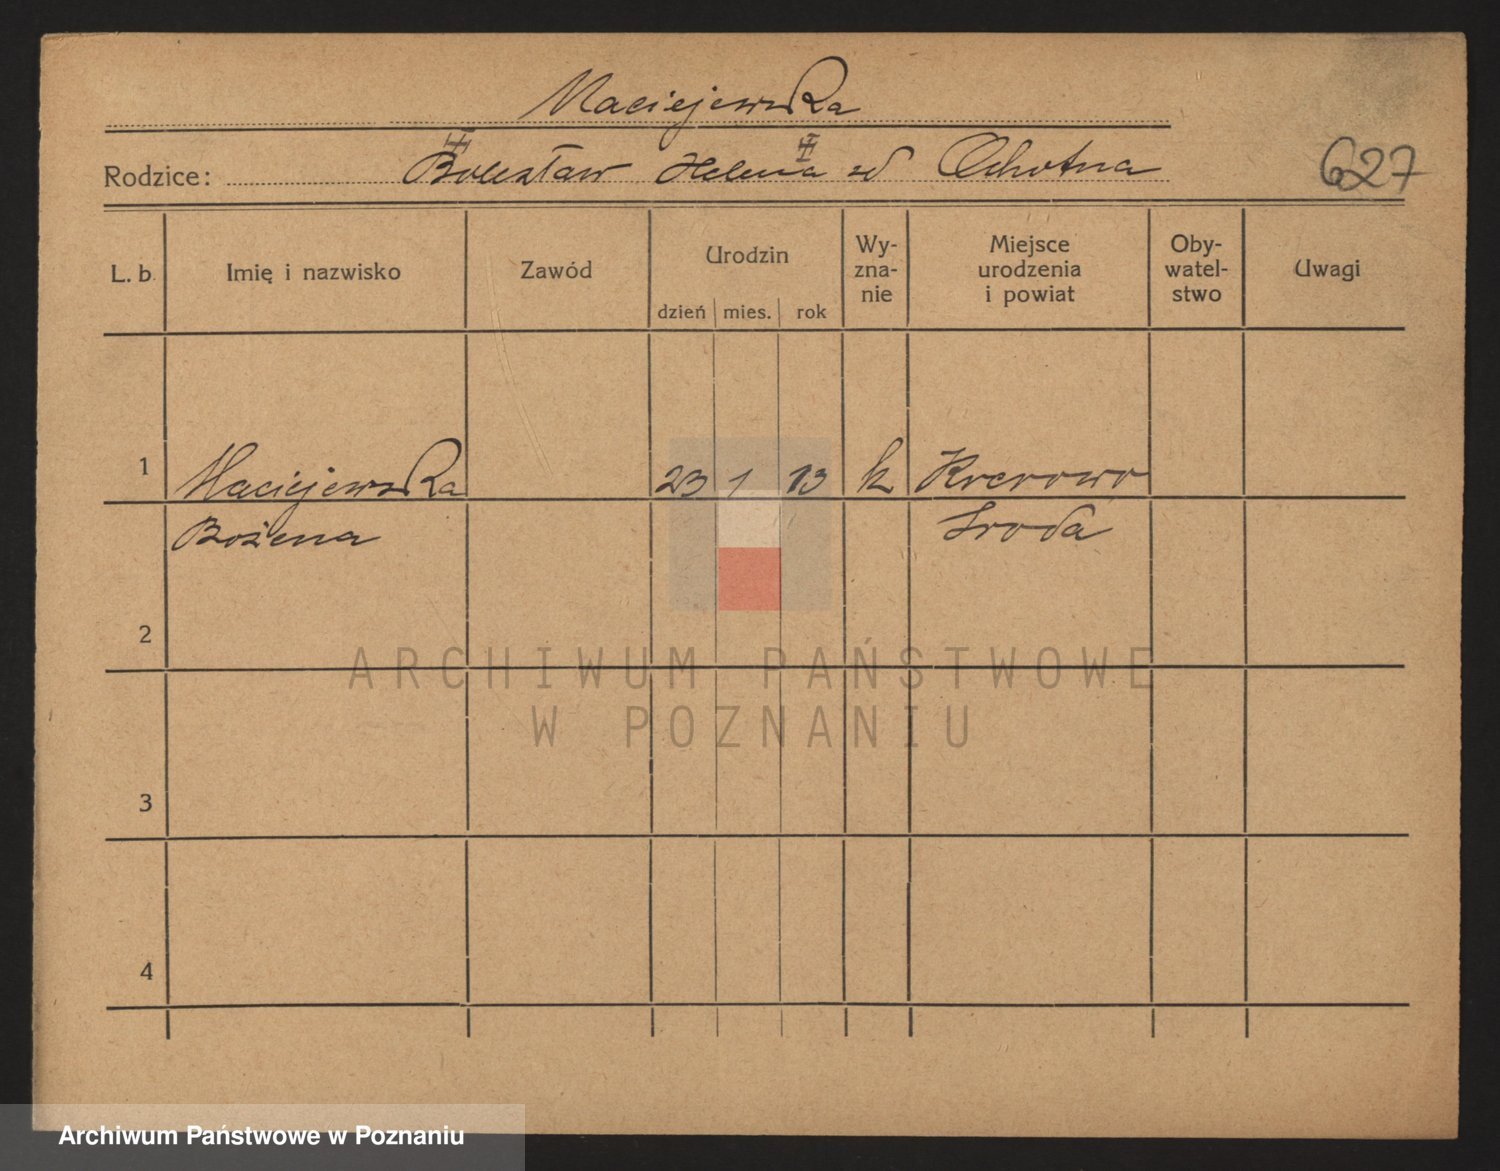 Maciejewska
Rodzice: Bolesław Helena zd Ochotna
627
L. b. Imię i nazwisko Zawód Urodzin Wy-zna-nie Miejsce urodzenia i powiat Oby-watel-stwo Uwagi
dzień mies. rok
1 Maciejewska 23 1 13 k Krerowo
Bożena Sroda
2
3
4
ARCHIWUM PAŃSTWOWE
W POZNANIU
Archiwum Państwowe w Poznaniu